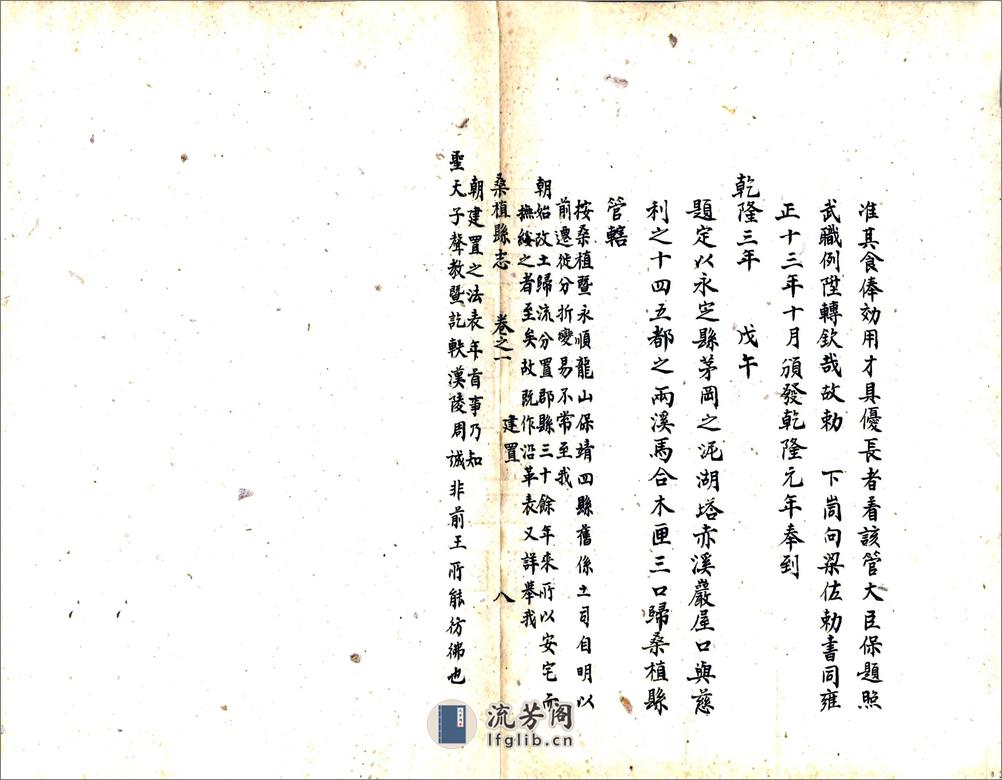 准其食俸効用才具優長者看該管大臣保題照
武職例陞轉欽哉故勅　下峝向梁佐勅書同雍
正十三年十月頒發乾隆元年奉到
乾隆三年　戊午
題定以永定縣茅岡之汍湖塔赤溪巖屋口與慈
利之十四五都之兩溪馬合木匣三口歸桑植縣
管轄
按桑植暨永順龍山保靖四縣舊係土司自明以
前遷徙分折變易不常至我
朝始改土歸流分置郡縣三十餘年來所以安宅而
撫綏之者至矣故既作沿革表又詳舉我
桑植縣志　卷之一　建置　八
朝建置之法表年首事乃知
聖天子聲教暨訖軼漢陵周誠非前王所能彷彿也
流芳阁
lfglib.cn